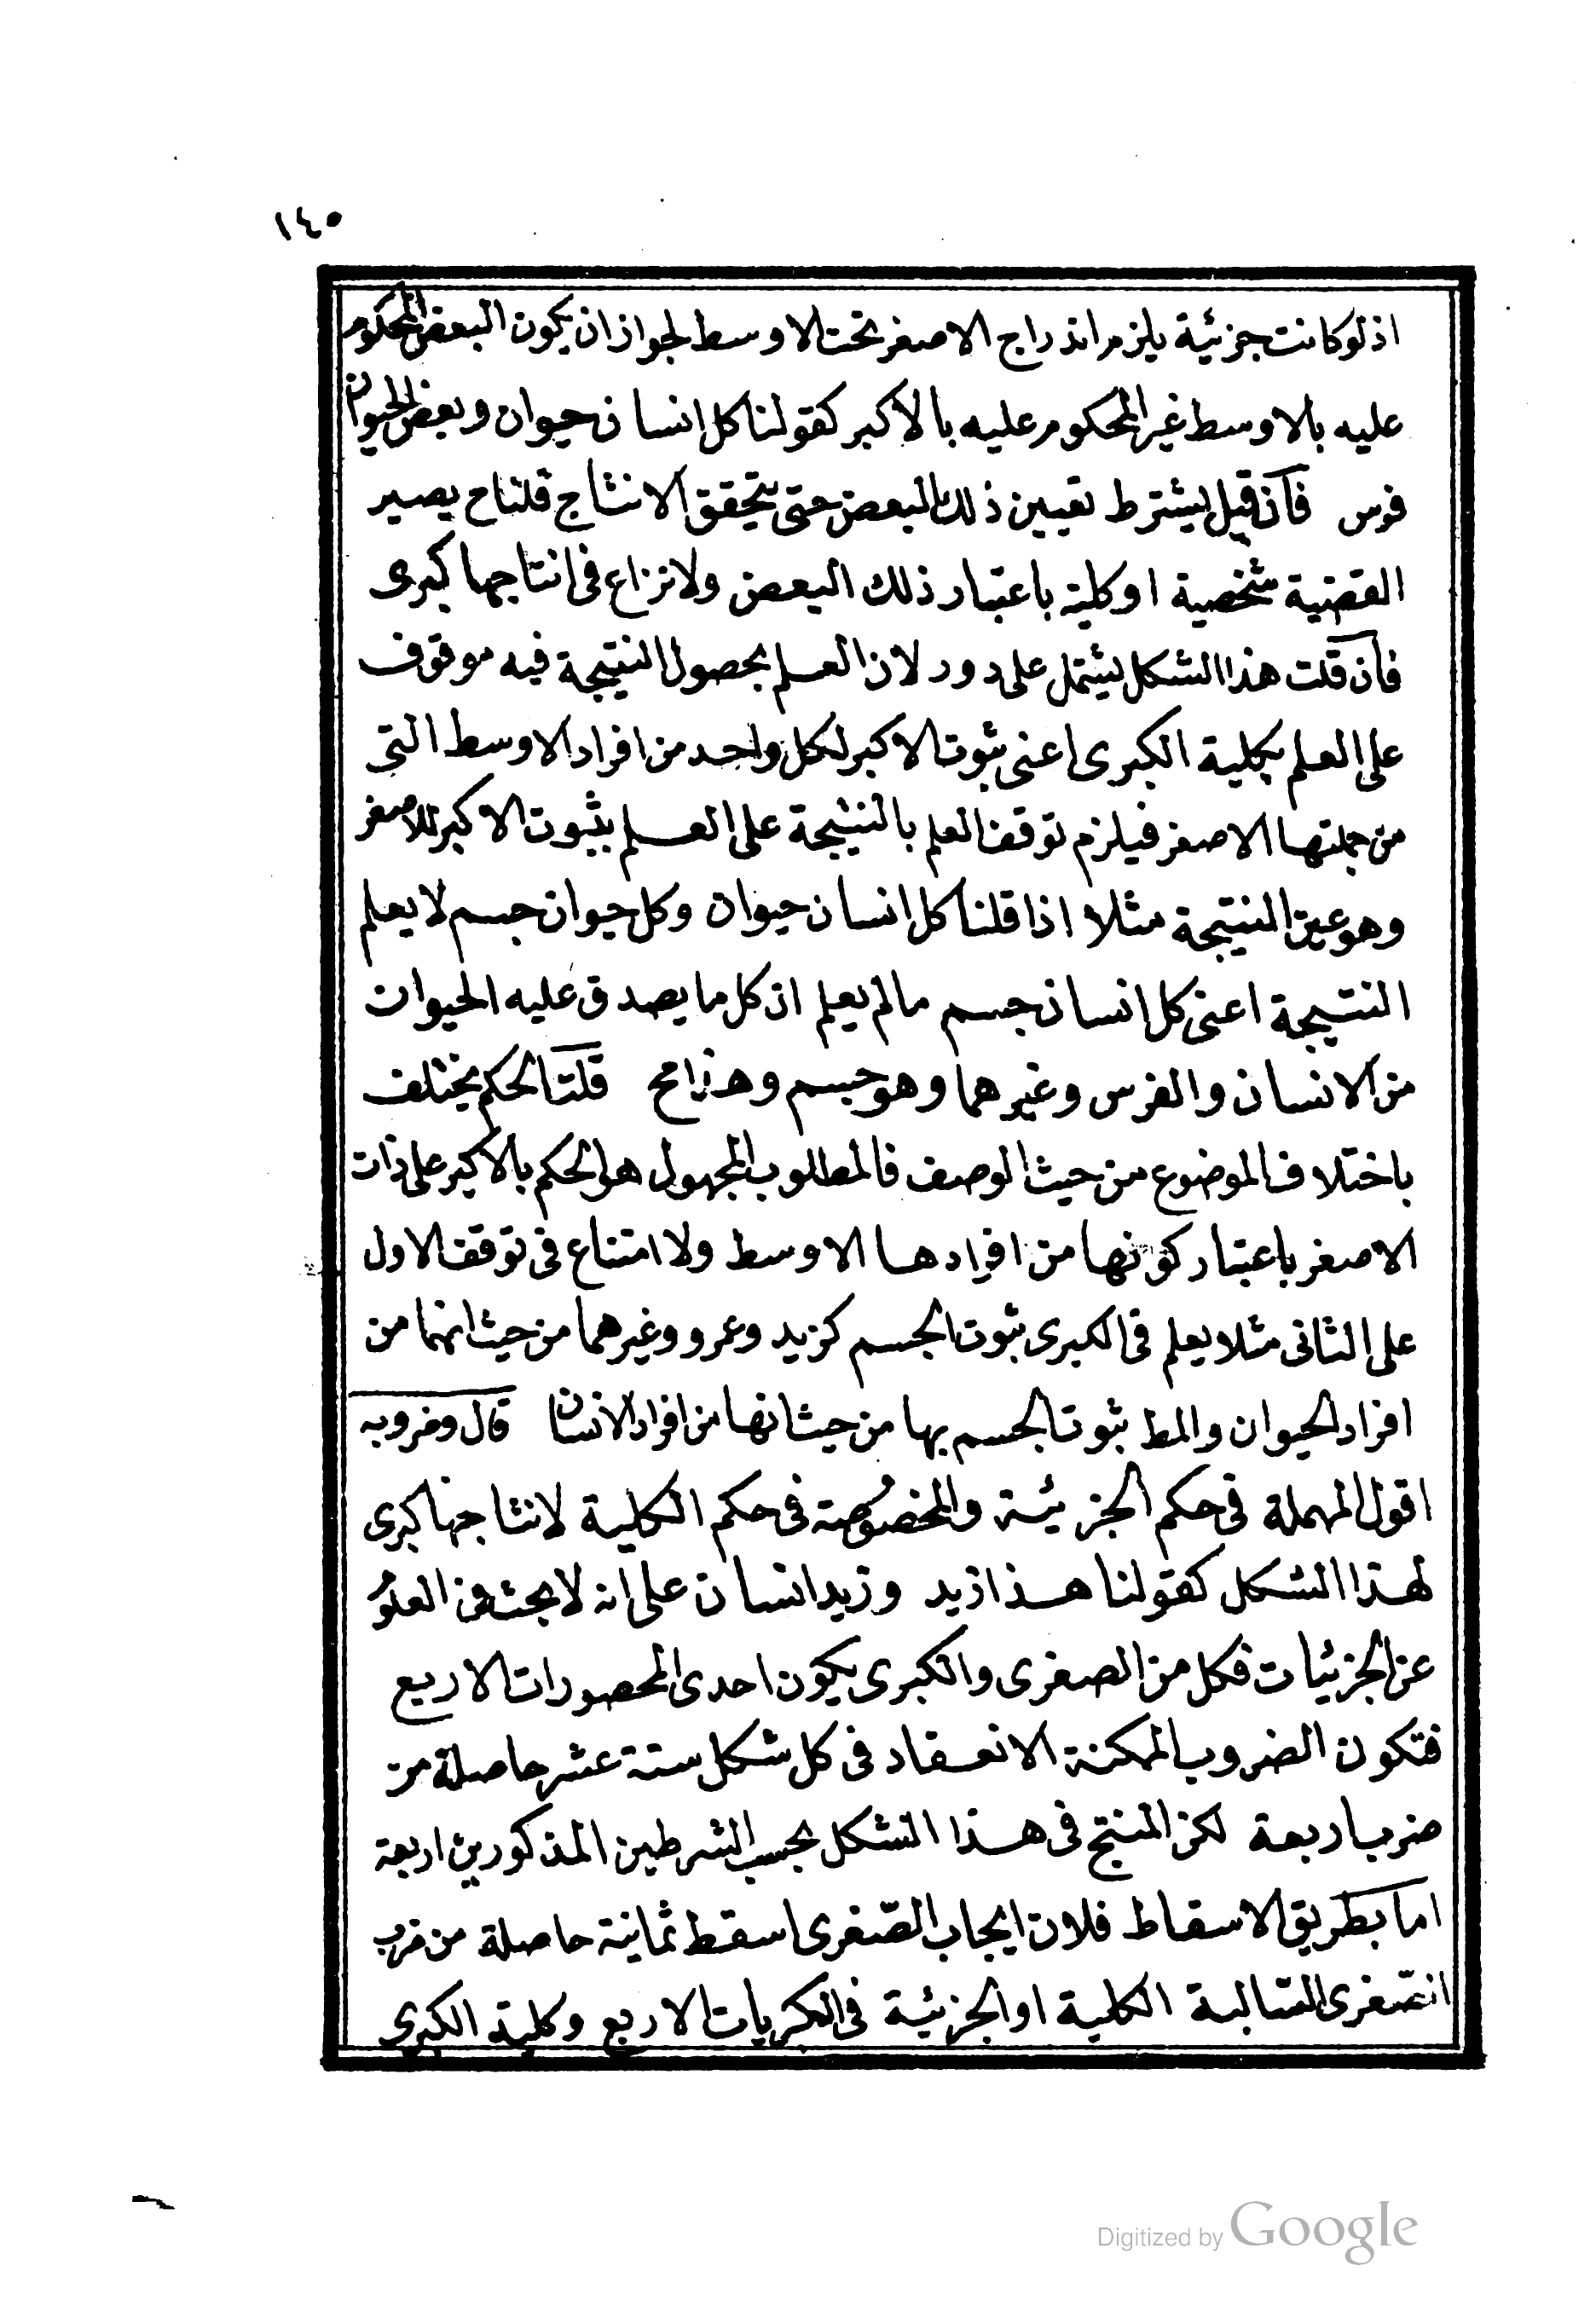 ١٤٥
اذ لو كانت جزئية يلزم اندراج الاصغر تحت الاوسط لجواز ان يكون البعض المحكوم
عليه بالاوسط غير المحكوم عليه بالاكبر كقولنا كل انسان حيوان وبعض الحيوان
فرس فان قيل يشترط تعيين ذلك البعض حتى يتحقق الانتاج قلناح يصير
القضية شخصية او كلية باعتبار ذلك البعض ولا نزاع فى انتاجها كبرى
فان قلت هذا الشكل يشتمل على دور لان العلم بحصول النتيجة فيه موقوف
على العلم بكلية الكبرى اعنى ثبوت الاكبر لكل واحد من افراد الاوسط التى
من جملتها الاصغر فيلزم توقف العلم بالنتيجة على العلم بثبوت الاكبر للاصغر
وهو عين النتيجة مثلا اذا قلنا كل انسان حيوان وكل حيوان جسم لا يعلم
النتيجة اعنى كل انسان جسم مالم يعلم ان كل ما يصدق عليه الحيوان
من الانسان والفرس وغيرهما وهو جسم وهذا مح قلت الحكم يختلف
باختلاف الموضوع من حيث الوصف فالمطلوب المجهول هو الحكم بالاكبر على ذات
الاصغر باعتبار كونها من افرادها الاوسط ولا امتناع فى توقف الاول
على الثانى مثلا يعلم فى الكبرى ثبوت الجسم كزيد وعمرو وغيرهما من حيث انهما من
افراد الحيوان والمط ثبوت الجسم بها من حيث انها من افراد الانسان قال وضروبه
اقول المهملة فى حكم الجزئية والمخصوصة فى حكم الكلية لانتاجها كبرى
لهذا الشكل كقولنا هذا زيد وزيد انسان على انه لا بحث فى العلوم
عن الجزئيات فكل من الصغرى والكبرى يكون احدى المحصورات الاربع
فتكون الضروب الممكنة الانعقاد فى كل شكل ستة عشر حاصلة من
ضرب اربعة لكن المنتج فى هذا الشكل بحسب الشرطين المذكورين اربعة
اما بطريق الاسقاط فلان ايجاب الصّغرى اسقط ثمانية حاصلة من ضرب
الصّغرى السّالبة الكلية او الجزئية فى الكبريات الاربع وكلية الكبرى
Digitized by Google